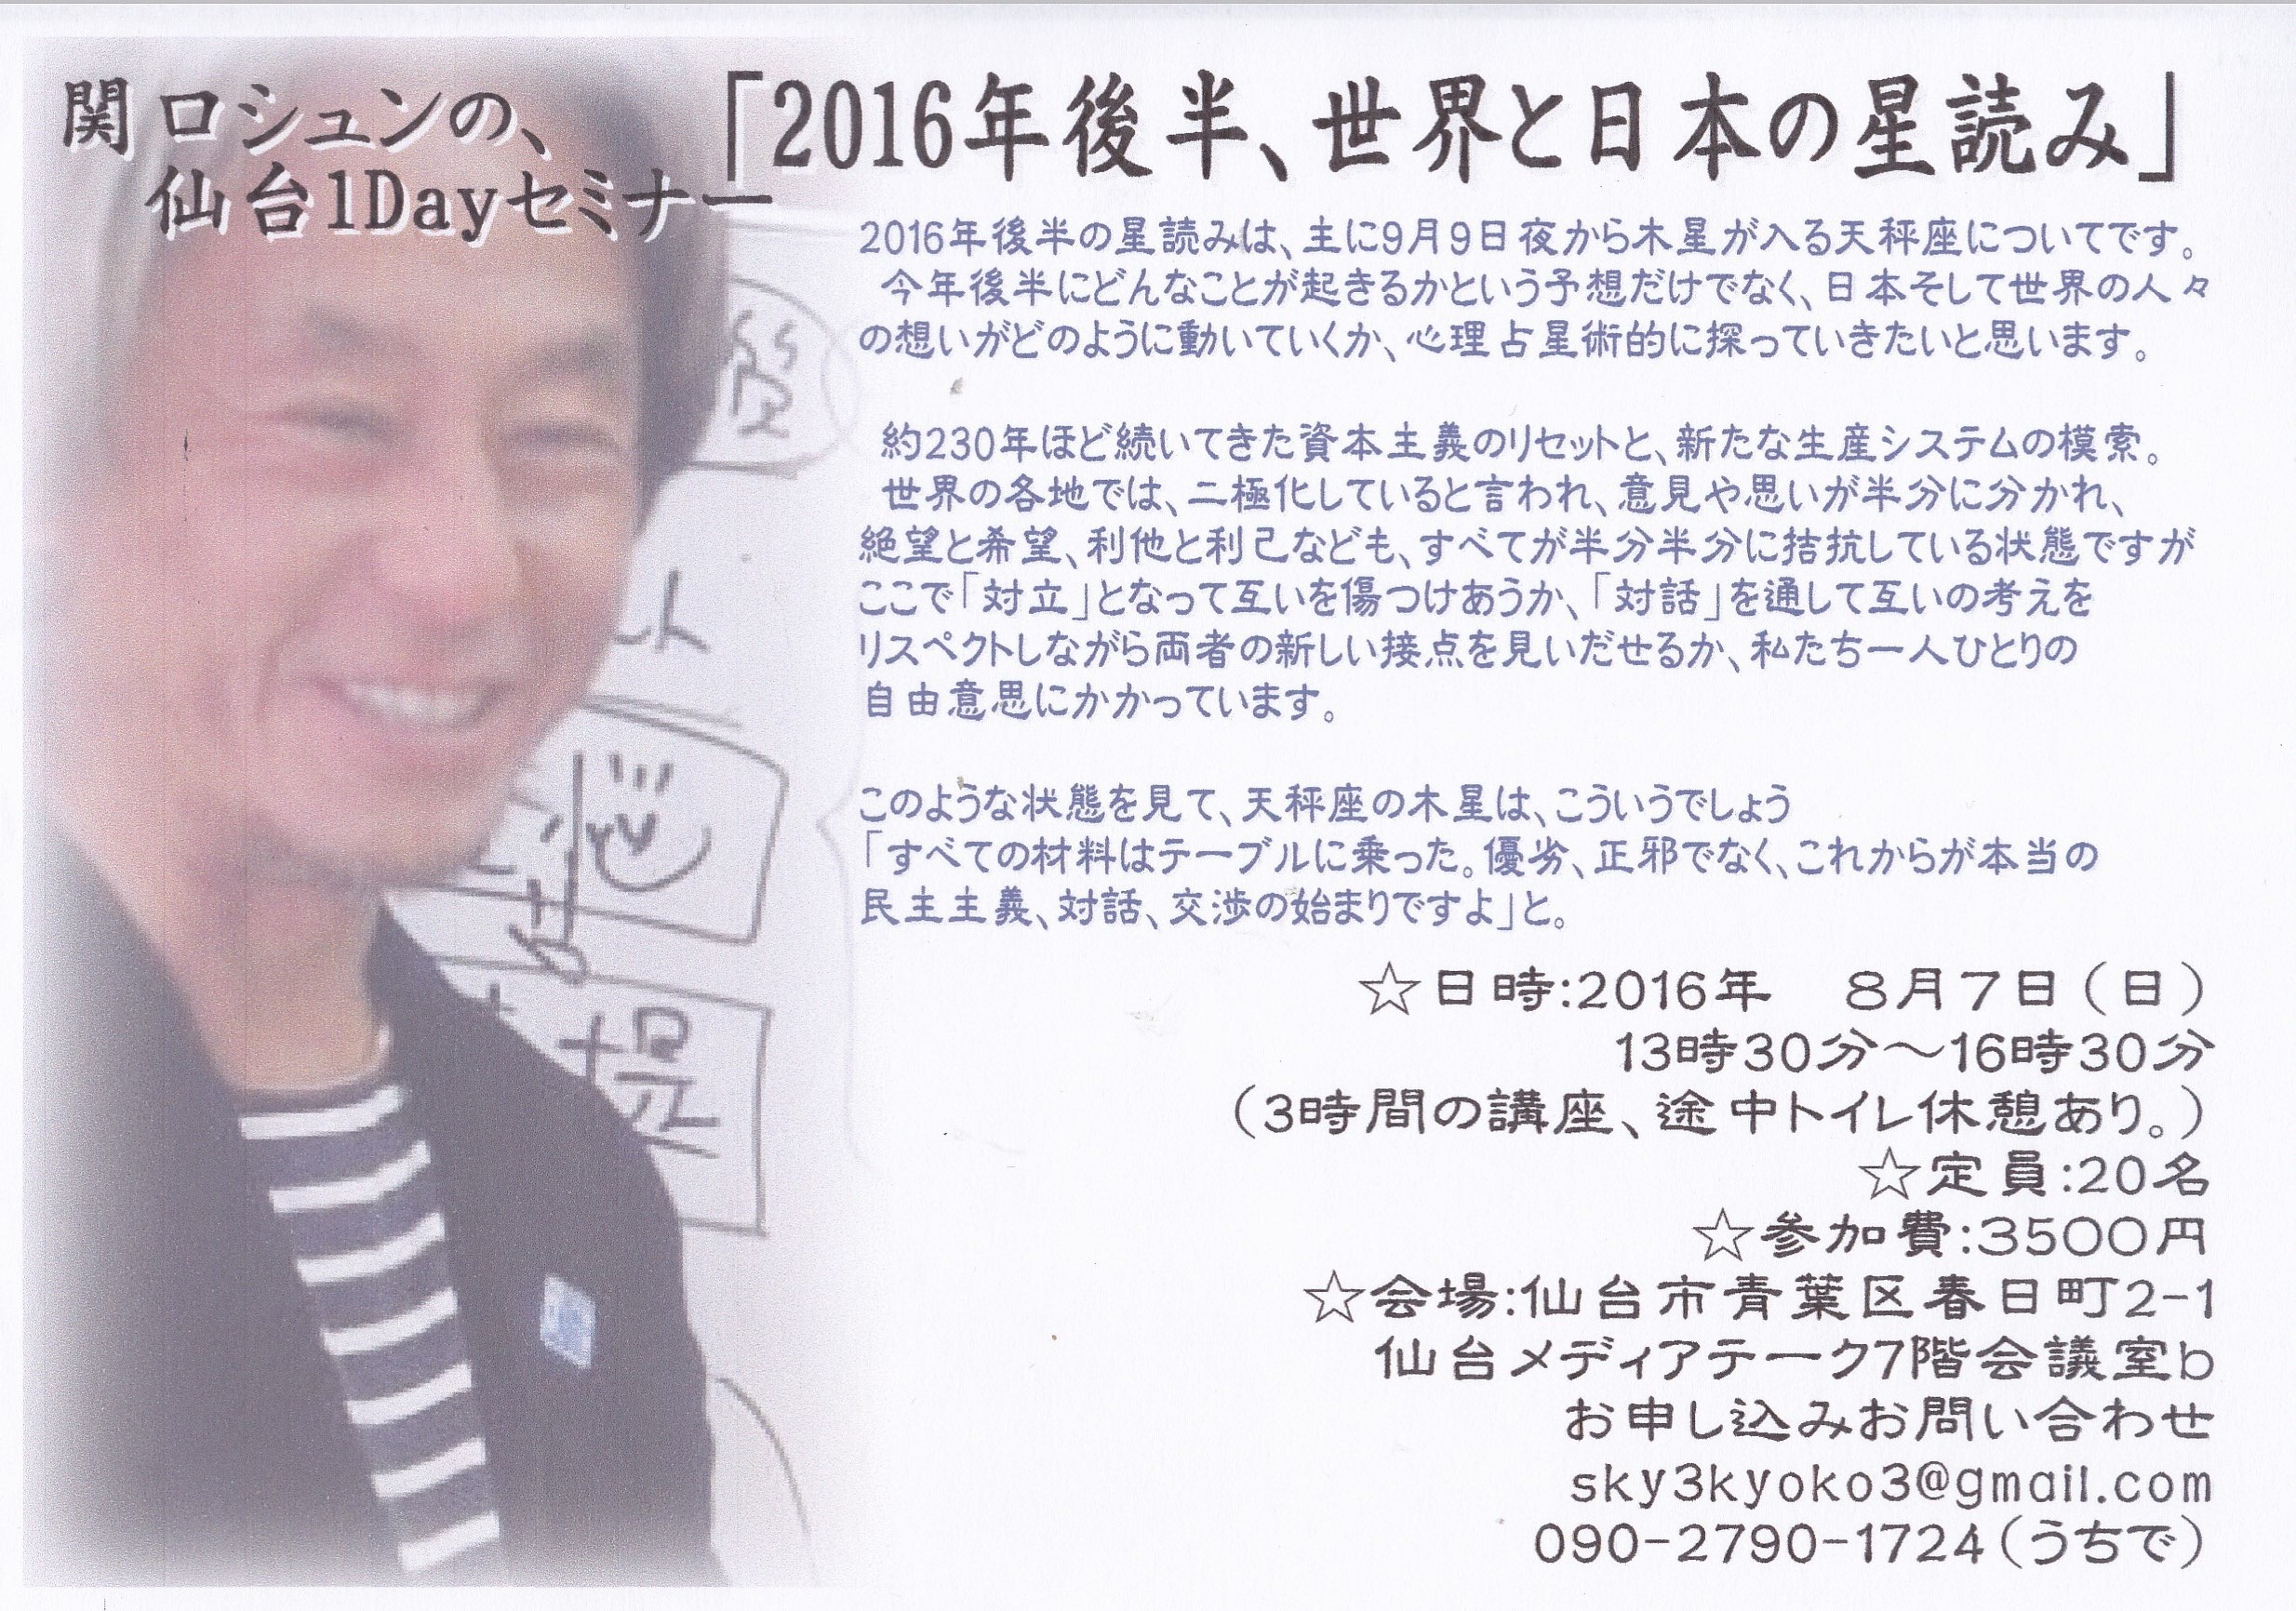 関 ロシュンの、
仙台1Dayセミナー
「2016年後半、世界と日本の星読み」
2016年後半の星読みは、主に9月9日夜から木星が入る天秤座についてです。
今年後半にどんなことが起きるかという予想だけでなく、日本そして世界の人々
の想いがどのように動いていくか、心理占星術的に探っていきたいと思います。
約230年ほど続いてきた資本主義のリセットと、新たな生産システムの模索。
世界の各地では、二極化していると言われ、意見や思いが半分に分かれ、
絶望と希望、利他と利己なども、すべてが半分半分に拮抗している状態ですが
ここで「対立」となって互いを傷つけあうか、「対話」を通して互いの考えを
リスペクトしながら両者の新しい接点を見いだせるか、私たち一人ひとりの
自由意思にかかっています。
このような状態を見て、天秤座の木星は、こういうでしょう
「すべての材料はテーブルに乗った。優劣、正邪でなく、これからが本当の
民主主義、対話、交渉の始まりですよ」と。
☆日時:2016年　8月7日（日）
13時30分～16時30分
（3時間の講座、途中トイレ休憩あり。）
☆定員:20名
☆参加費:3500円
☆会場:仙台市青葉区春日町2-1
仙台メディアテーク7階会議室b
お申し込みお問い合わせ
sky3kyoko3@gmail.com
090-2790-1724（うちで）